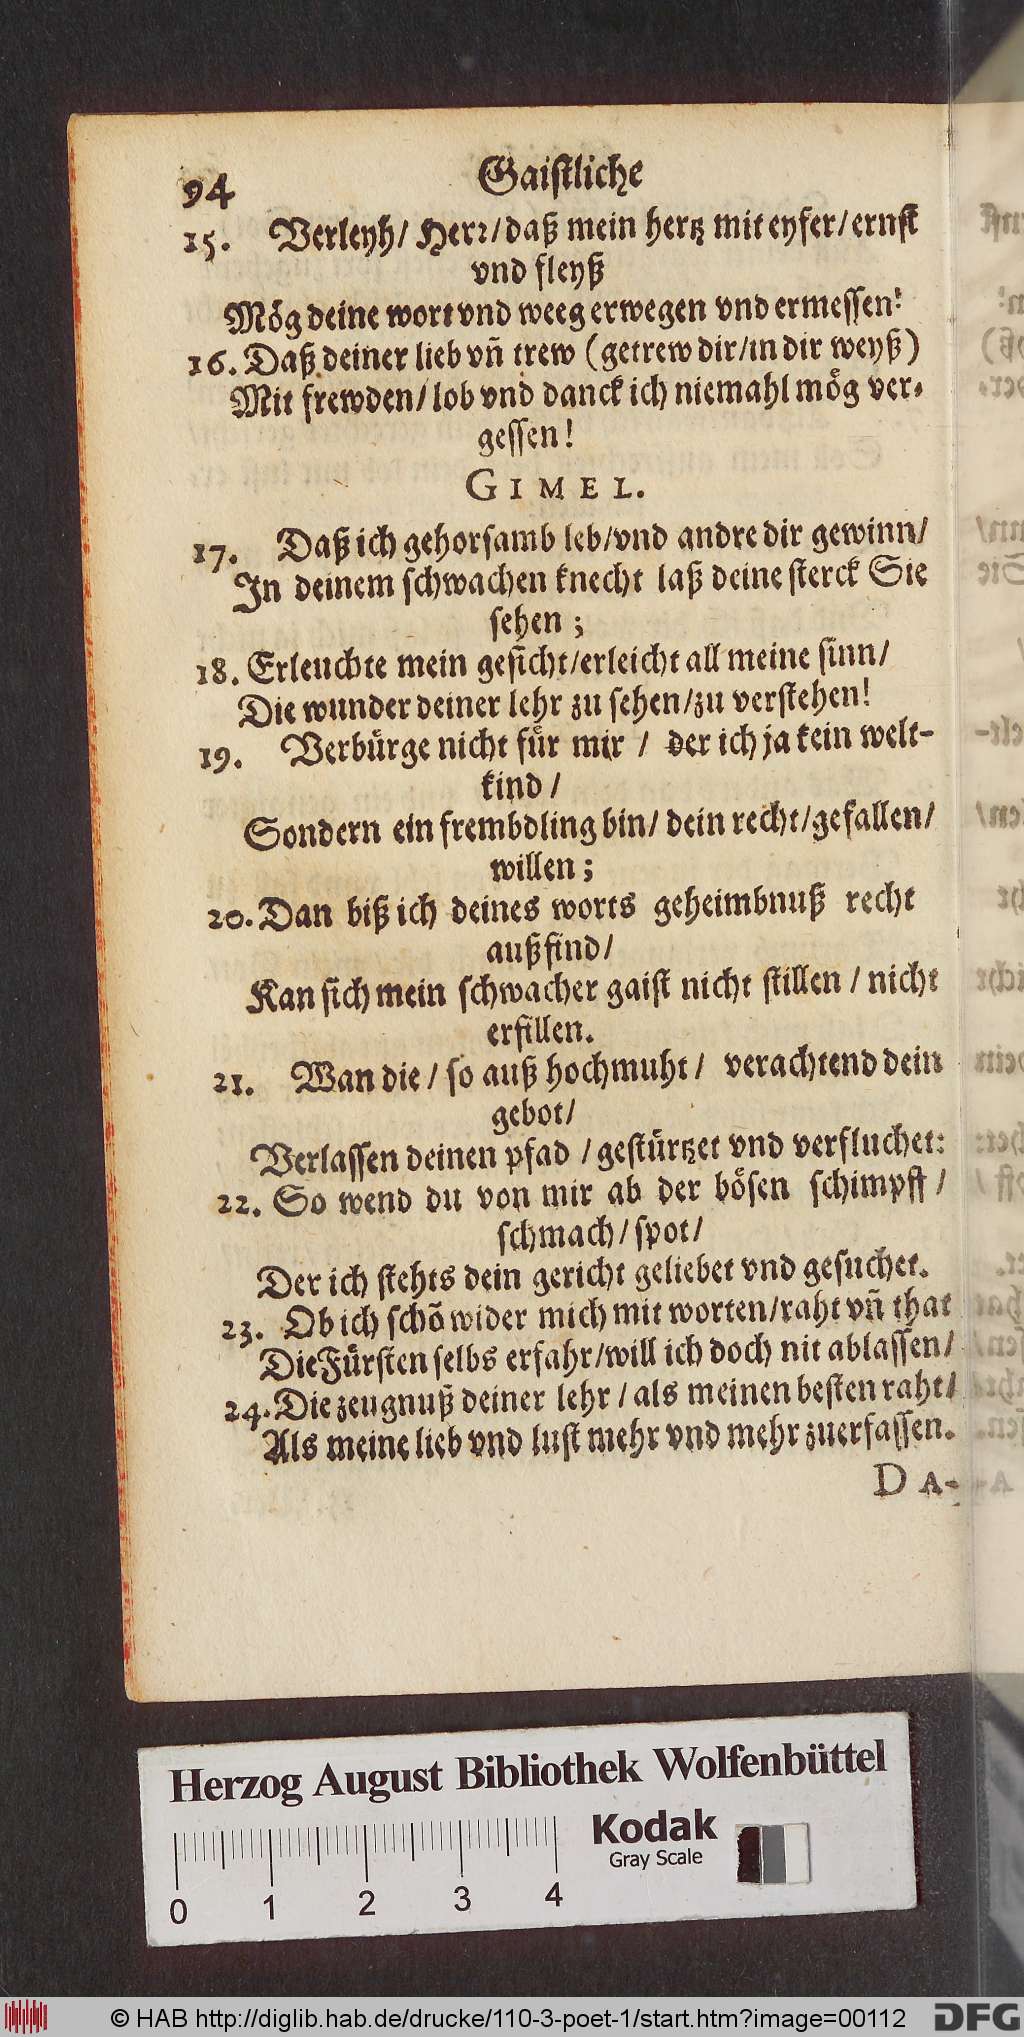 94 Gaistliche
15. Verleyh/ Herr/daß mein hertz mit eyfer/ernst
vnd fleyß
Mög deine wort vnd weeg erwegen vnd ermessen!
16. Daß deiner lieb vñ trew (getrew dir/in dir weyß)
Mit frewden/ lob vnd danck ich niemahl mög ver-
gessen!
GIMEL.
17. Daß ich gehorsamb leb/vnd andre dir gewinn/
In deinem schwachen knecht laß deine sterck Sie
sehen;
18. Erleuchte mein gesicht/erleicht all meine sinn/
Die wunder deiner lehr zu sehen/zu verstehen!
19. Verbürge nicht für mir / der ich ja kein welt-
kind/
Sondern ein frembdling bin/ dein recht/gefallen/
willen;
20. Dan biß ich deines worts geheimbnuß recht
außfind/
Kan sich mein schwacher gaist nicht stillen / nicht
erfillen.
21. Wan die / so auß hochmuht / verachtend dein
gebot/
Verlassen deinen pfad / gestürtzet vnd verfluchet:
22. So wend du von mir ab der bösen schimpff /
schmach/ spot/
Der ich stehts dein gericht geliebet vnd gesuchet.
23. Ob ich schõ wider mich mit worten/raht vñ that
Die Fürsten selbs erfahr/will ich doch nit ablassen/
24. Die zeugnuß deiner lehr / als meinen besten raht/
Als meine lieb vnd lust mehr vnd mehr zuerfassen.
DA-
Herzog August Bibliothek Wolfenbüttel
Kodak
Gray Scale
0 1 2 3 4
© HAB http://diglib.hab.de/drucke/110-3-poet-1/start.htm?image=00112
DFG